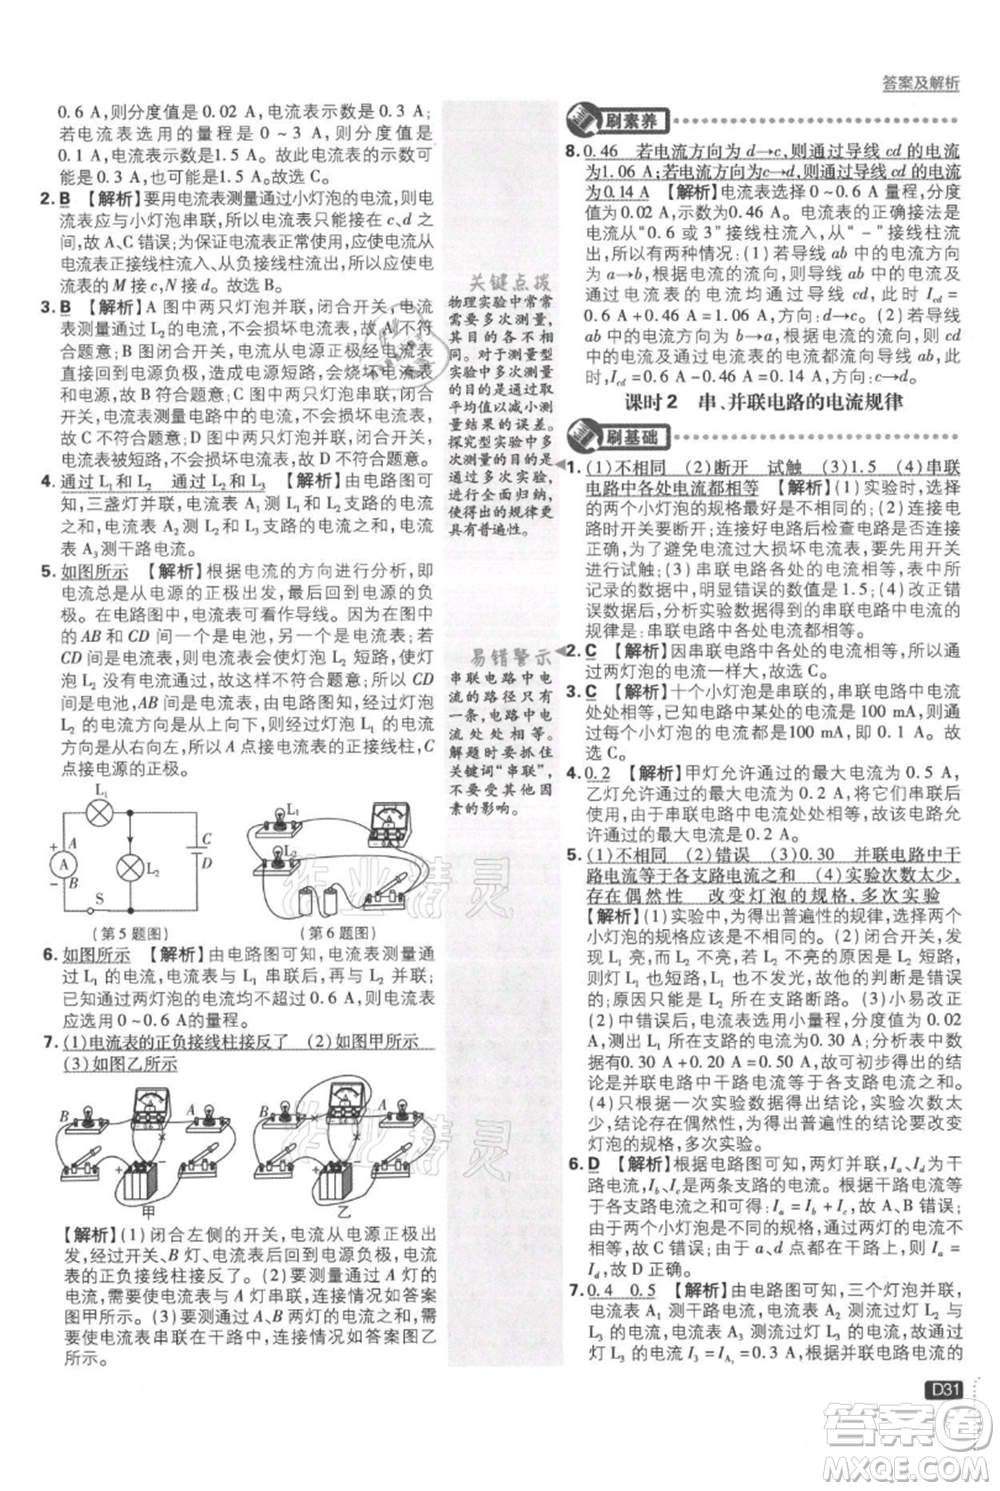 答案及解析
0.6 A,则分度值是 0.02 A,电流表示数是 0.3 A;
若电流表选用的量程为 0～3 A,则分度值是
0.1 A,电流表示数是1.5 A。故此电流表的示数可
能是0.3 A,也可能是1.5 A。故选C。
2.B 【解析】要用电流表测量通过小灯泡的电流,则电
流表应与小灯泡串联,故电流表只能接在 c、d 之
间,故 A、C 错误;为保证电流表正常使用,应使电流
从正接线柱流入、从负接线柱流出,即应使电流表
的 M 接 c、N 接 d。故选B。
3.B 【解析】A 图中两只灯泡并联,闭合开关,电流
表测量通过 L₂ 的电流,不会损坏电流表,故 A 不符
合题意;B 图闭合开关,电流从电源正极经电流表
直接回到电源负极,会烧坏电流表,故 B 符合题
意;C 图闭合开关,两只灯泡串联,有电流通过电流
表,电流表测量电路中的电流,不会损坏电流表,
故 C 不符合题意;D 图中两只灯泡串联,L₂ 和电
流表被短路,不会损坏电流表,故 D 不符合题意。
4.通过 L₁和 L₂ 通过 L₂和 L₃ 【解析】由电路图可
知,三盏灯并联,电流表 A₁ 测 L₁ 和 L₂ 支路的电流
之和,电流表 A₂ 测 L₂ 和 L₃ 支路的电流之和,电流
表 A₃ 测干路电流。
5.如图所示 【解析】根据电流的方向进行分析,即
电流总是从电源的正极出发,最后回到电源的负
极。在电路图中,电流表可看作导线。因为图中
的 AB 和 CD 间一个是电池,另一个是电流表;若
CD 间是电流表,则会使灯泡 L₂ 短路,使灯泡 L₂
不能发光,所以 AB 两点间应该是电流表,CD 两点
间是电池,两灯并联,即如图所示。由题图知,灯泡
L₂ 的电流方向是从上向下,则经过灯泡 L₁ 的电流
方向是从右向左,所以 A 点接电流表的正接线柱,C
点接电源的正极。
L₁
A
B
L₂
C
D
S
(第 5 题图)
L₁
L₂
(第 6 题图)
6.如图所示 【解析】由电路图可知,电流表测量通
过 L₁ 的电流,电流表与 L₁ 串联后,再与 L₂ 并联;
已知通过两灯泡的电流不超过 0.6 A,则电流表
应选用 0～0.6 A的量程。
7.(1)电流表的正负接线柱接反了 (2)如图甲所示
(3)如图乙所示
B
A
甲
B
A
乙
【解析】(1)闭合左侧的开关,电流从电源正极出
发,经过开关、B 灯、电流表后回到电源负极,电流
表的正负接线柱接反了。(2)要测量通过 A 灯的
电流,需要使电流表与 A 灯串联,连接情况如答案
图甲所示。(3)要测通过 A、B 两灯的电流之和,需
要使电流表串联在干路中,连接情况如答案图乙
所示。
关键点拨
物理实验中常常
需要多次测量,
其目的各不相
同。对于测量型
实验来说,多次
测量的目的是取
平均值以减小测
量结果的误差。
探究型实验的多
次测量是为了进
行全面归纳,
使得出的规律更
具有普遍性。
易错警示
串联电路中电
流的路径只有
一条,电路中电
流处处相等。
解题时要抓住
关键词“串联”,
不要受其他因
素的影响。
刷素养
8.0.46 若电流方向为d→c,则通过导线 cd 的电流
为1.06 A;若电流方向为 c→d,则通过导线 cd 的电流
为0.14 A 【解析】电流表选择 0～0.6 A 量程,分度
值为 0.02 A,示数为0.46 A。电流表的正确接法是
电流从“0.6 或 3”接线柱流入,从“－”接线柱流
出,所以有两种情况:(1)若导线 ab 中的电流方向
为 a→b,根据电流的流向,导线 cd 中的电流应为
通过电源和电流表的电流之和,故 I_cd =
0.6 A + 0.46 A = 1.06 A,方向为 d→c。(2)若导线
ab 中的电流方向为 b→a,根据电流的流向,则 cd
中的电流与通过电流表的电流之和等于电源电流,
故I_cd=0.6 A－0.46 A=0.14 A,方向为 c→d。
课时 2 串、并联电路的电流规律
刷基础
1.(1)不相同 (2)断开 试触 (3)1.5 (4)串联
电路中各处电流都相等 【解析】(1)实验时,选择
的两个小灯泡的规格最好是不相同的。(2)连接电
路时开关要断开;连接好电路后检查电路是否连接
正确,为了避免电流过大损坏电流表,要先用开关
进行试触;(3)串联电路中各处电流相等,而表中所
记录的数据中,明显错误的数值是1.5。(4)改正错
误数据后,分析实验数据得到的串联电路中电流的
规律是:串联电路中各处电流都相等。
2.C 【解析】因串联电路中各处电流相等,所以
通过两灯泡的电流一样大,故选 C。
3.C 【解析】十个小灯泡是串联的,串联电路中电流
处处相等。已知电路中某处的电流是 100 mA,所
以,通过每个小灯泡的电流都是 100 mA。故
选 C。
4.0.2 【解析】甲灯允许通过的最大电流为 0.5 A,
乙灯允许通过的最大电流为 0.2 A,若两灯串联
使用,由于串联电路中电流处处相等,故电路允
许通过的最大电流为 0.2 A。
5.(1)不相同 (2)错误 (3)0.30 并联电路中干
路电流等于各支路电流之和 (4)实验次数太少,
存在偶然性 改变灯泡的规格,多次实验
【解析】(1)实验中,为得出普遍性的规律,两个
小灯泡的规格应该是不相同的。(2)闭合开关后,
L₁ 亮,而 L₂ 不亮,如果 L₂ 不亮的原因是支路
短路,则 L₁ 也不发光,故他的判断是错误
的;原因只可能是 L₂ 所在支路断路。(3)小易改正
错误后,电流表选用小量程,分度值为 0.02
A,测出的电流为0.30 A;分析初步得出的实验数
据有0.30 A + 0.20 A = 0.50 A,故可初步得出的结
论是并联电路中干路电流等于各支路电流之和。
(4)只根据一次实验数据得出结论,实验次数太
少,结论存在偶然性,为得到普遍性的规律,应改变
灯泡的规格,多次实验。
6.D 【解析】根据电路图可知,两灯并联,Iₐ、I_d 为干
路电流,I_b、I_c为两支路电流。根据干路电流等于各
支路电流之和,有 Iₐ = I_b + I_c,故 A、B 错误;
由于两个小灯泡的规格不同,通过两灯的电流不
同,故 C 错误;由于 a、d 两点都在干路上,所以 Iₐ =
I_d,故 D 正确。故选 D。
7.0.4 0.5 【解析】由电路图可知,三个灯泡并联,
电流表 A₁ 测干路的总电流,电流表 A₂ 测灯 L₂ 与
L₃ 的电流,电流表 A₃ 测通过 L₃ 支路的电流。通过
灯 L₃ 的电流 I₃ = I_A₃ =0.3 A,根据并联电路电流的
D31
作业精灵
作业精灵
答案圈
MXQE.COM